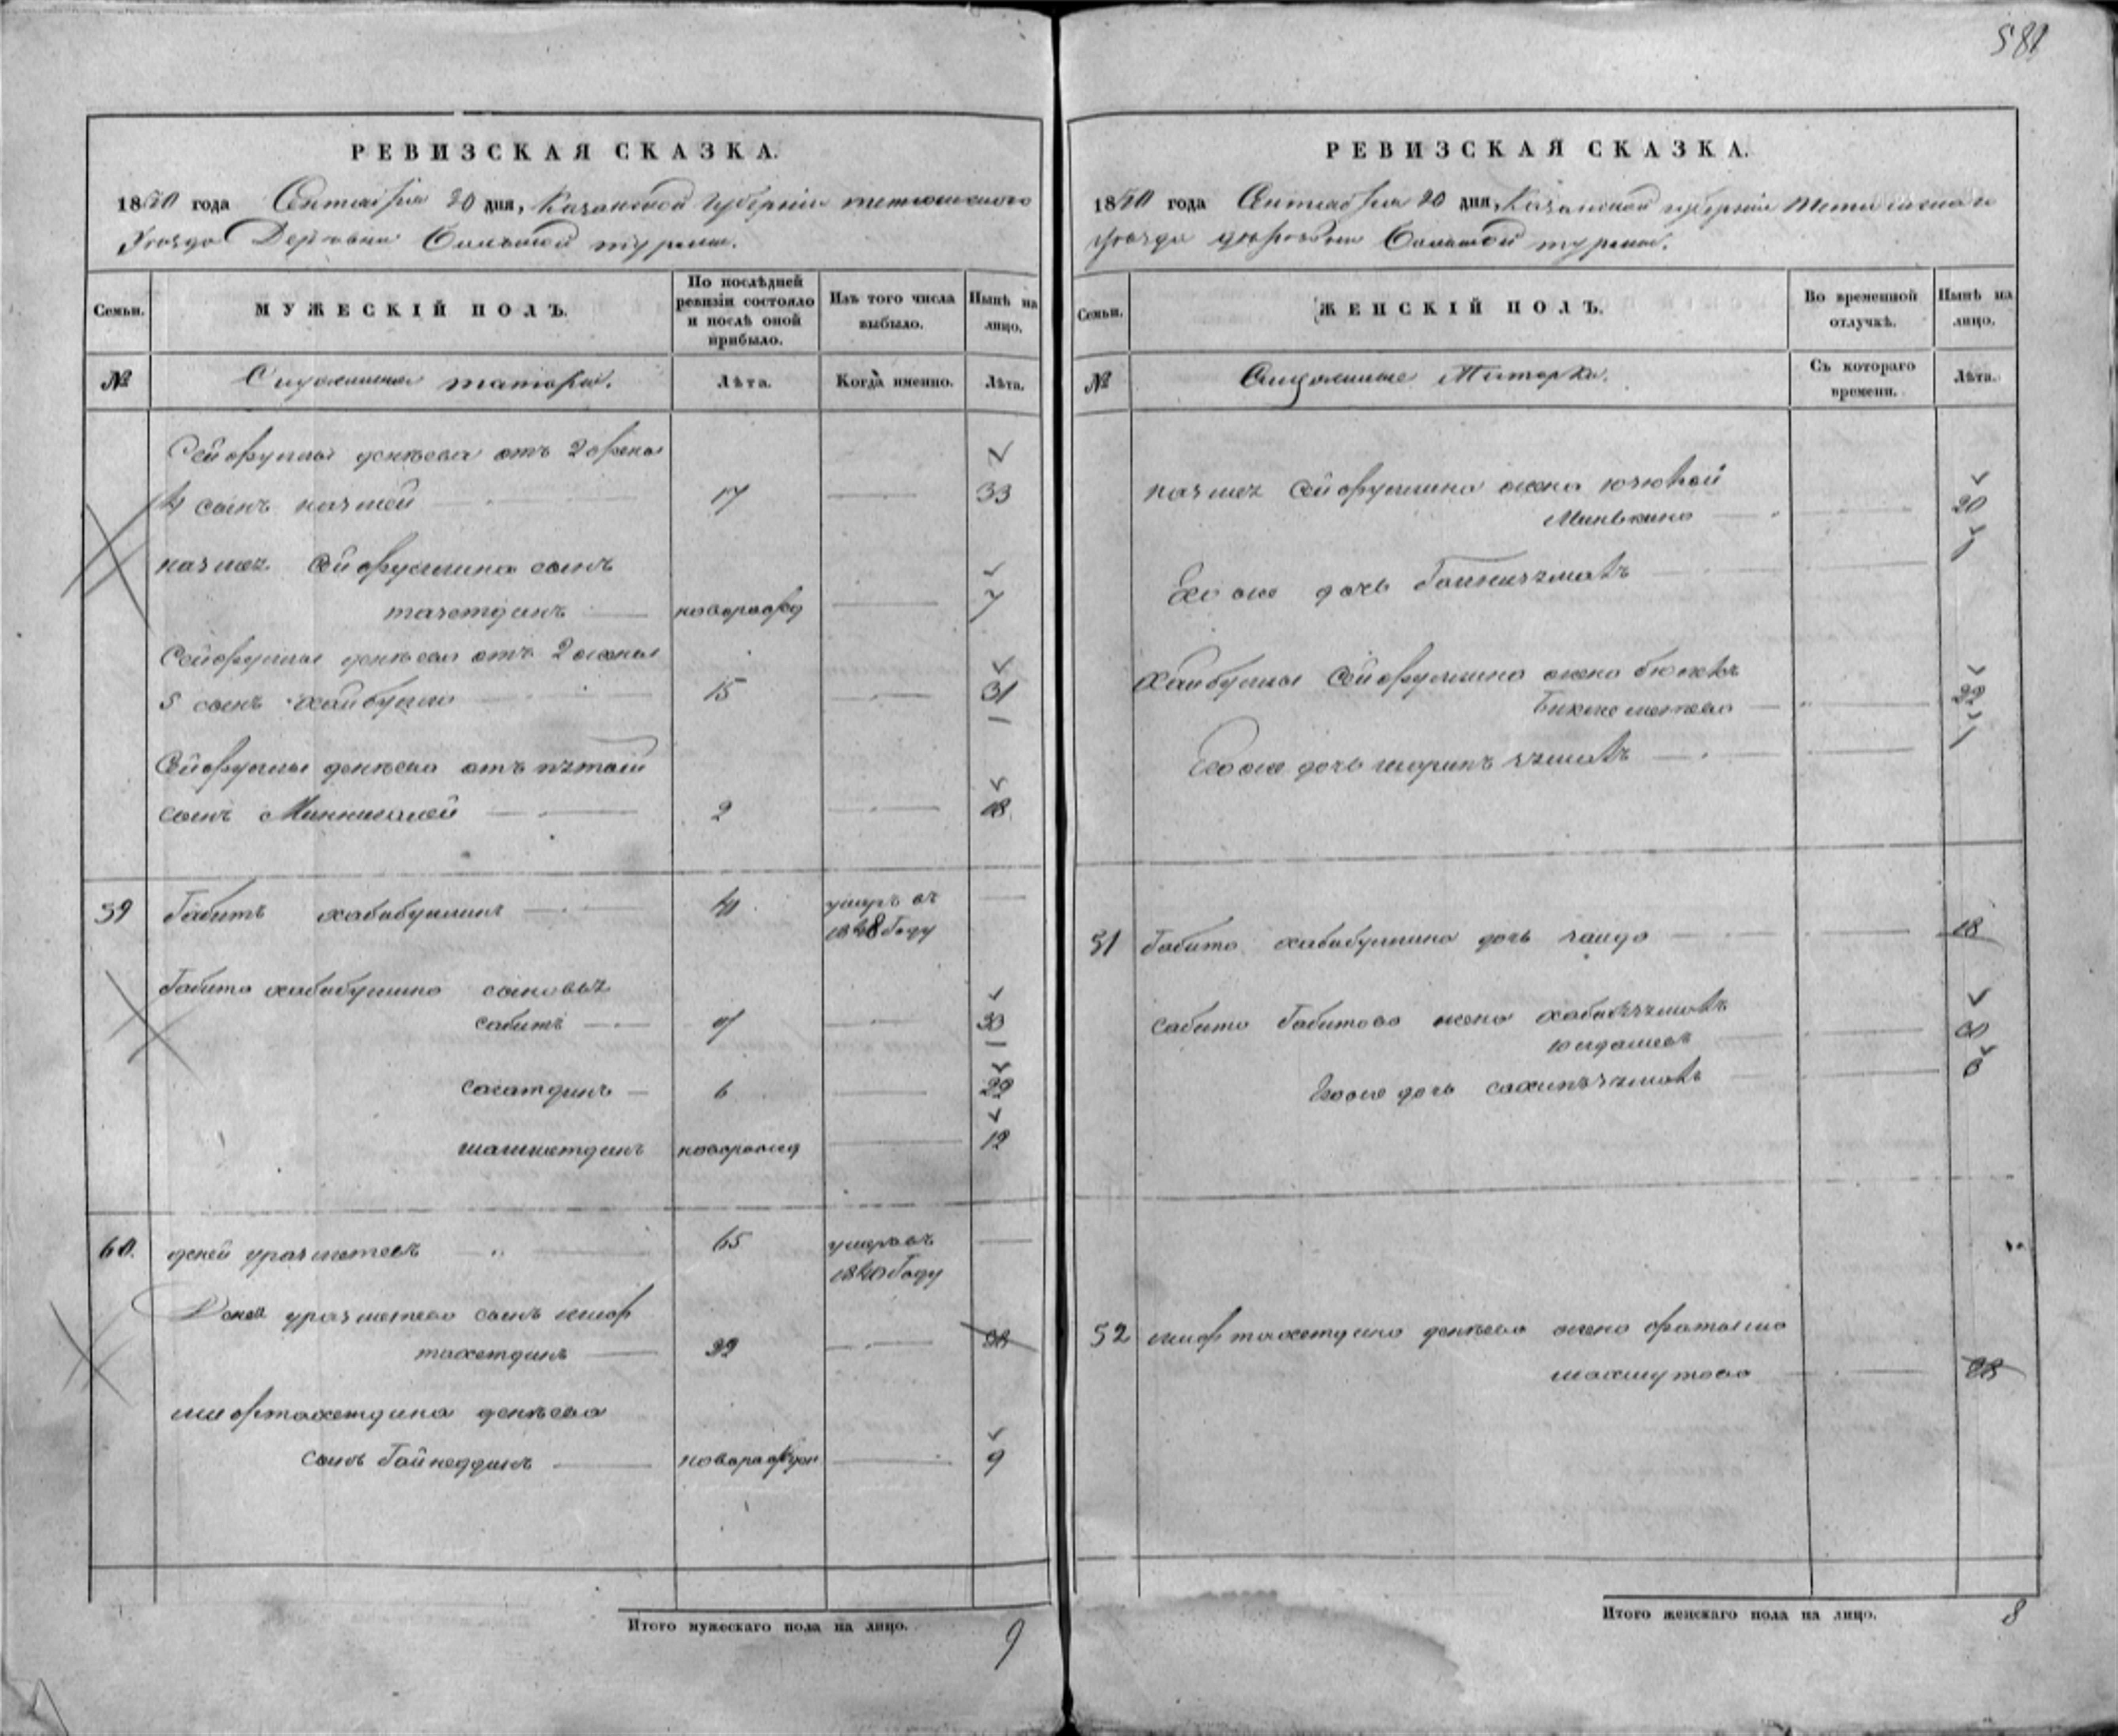 581
РЕВИЗСКАЯ СКАЗКА.
1850 года Сентября 20 дня, Казанской Губернии тетюшскаго
Уезда Деревни Большой турмы.
Семьи.
МУЖЕСКІЙ ПОЛЪ.
По послѣдней ревизіи состояло и послѣ оной прибыло.
Изъ того числа выбыло.
Нынѣ на лицо.
№
татары.
Лѣта.
Когда именно.
Лѣта.
Сейфуллы денѣева отъ 2 жены
4 сынъ назмей 17 33
назмея Сейфуллина сынъ
тазетдинъ новорожд 7
Сейфуллы денѣева отъ 2 жены
5 сынъ хайбулла 15 31
Сейфуллы денѣева отъ
сынъ Миннигалей 2 18
59 Габитъ хабибуллинъ 41 умеръ въ
1848 году
Габита хабибуллина сыновья
сабитъ 30
сагатдинъ 6 22
шагиметдинъ новорожд 12
60. деней уразметевъ 65 умеръ въ
1840 году
Деней уразметева сынъ миф
тахетдинъ 22 38
мифтахетдина денѣева
сынъ Гайнеддинъ новорожден 9
Итого мужескаго пола на лицо. 9
РЕВИЗСКАЯ СКАЗКА.
1850 года Сентября 20 дня, Казанской губерніи Тетюшскаго
уезда деревни Большой турмы.
Семьи.
ЖЕНСКІЙ ПОЛЪ.
Во временной отлучкѣ.
Нынѣ на лицо.
№
Татарки.
Съ котораго времени.
Лѣта.
назмея Сейфуллина жена
Минвкина 20
Его же дочь
Хайбуллы Сейфуллина жена
22
Его же дочь
51 Габита хабибуллина дочь саида 18
сабита Габитова жена
юлдашева 30
Его же дочь 6
52 мифтахетдина денѣева жена фатыма
махмутова 38
Итого женскаго пола на лицо. 8